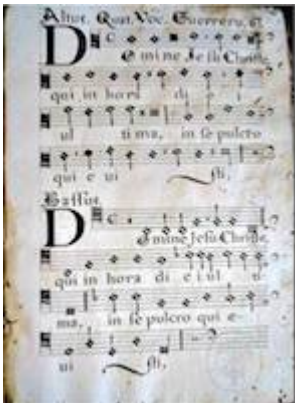 Altus. Quat. Voc. Guerrero.
Domine Jesu Christe,
qui in hora di e i
ul ti ma, in se pulcro
qui e ui sti,
Bassus.
Domine Jesu Christe,
qui in hora di e i ul ti
ma, in se pulcro qui e-
ui sti,